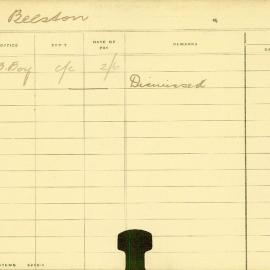 Beeston
OFFICE DEP'T RATE OF PAY REMARKS
B. Boy c/c 2/6
Dismissed